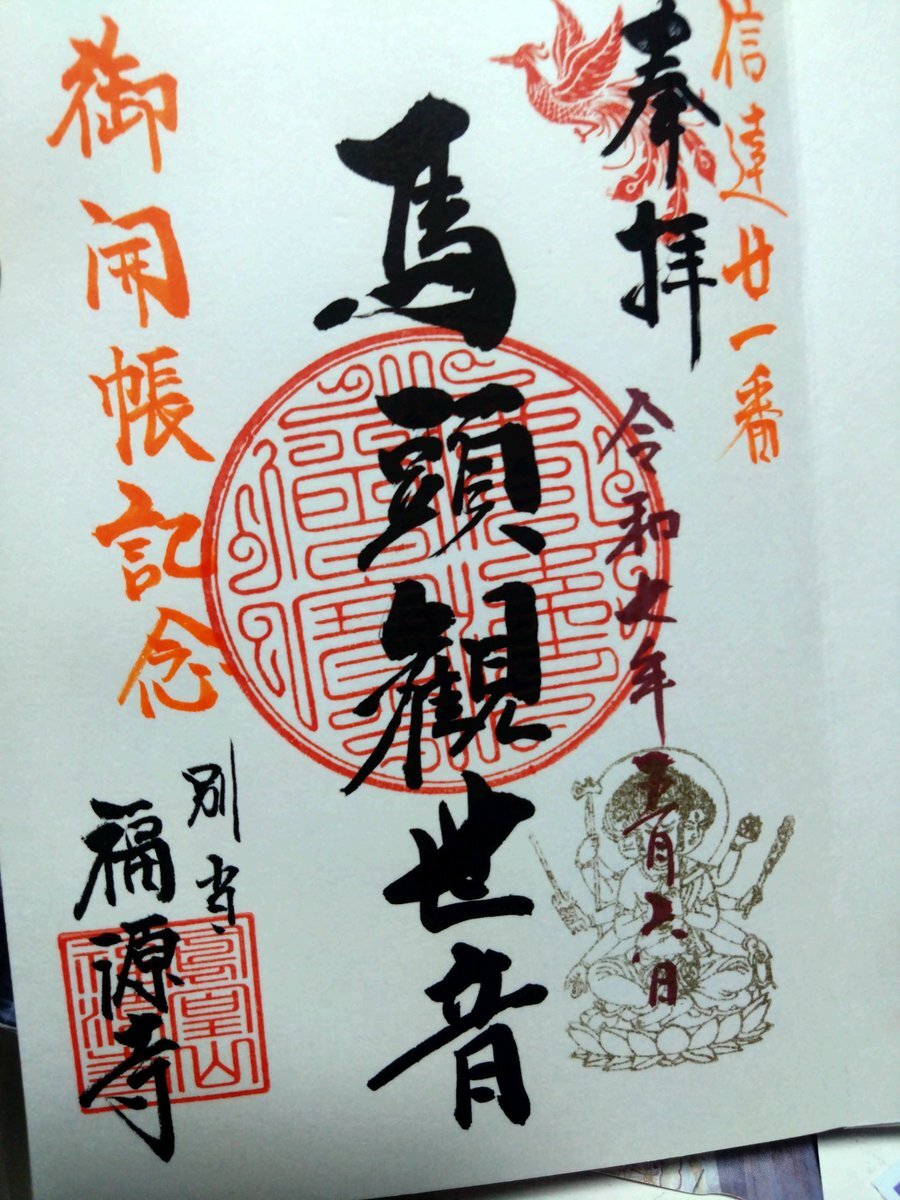 信達廿一番
奉拝
令和七年
五月六日
馬頭観世音
御開帳記念
別当
福源寺